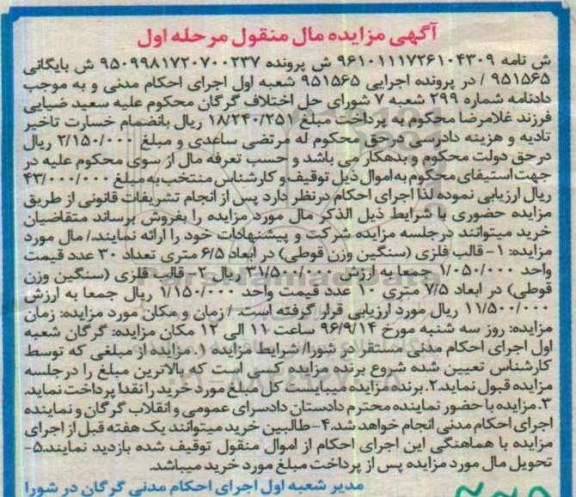 آگهی مزایده مال منقول مرحله اول
ش نامه ۹۶۱۰۱۱۱۷۲۶۱۰۴۳۰۹ ش پرونده ۹۵۰۹۹۸۱۷۲۰۷۰۰۲۳۷ ش بایگانی
۹۵۱۵۶۵ / در پرونده اجرایی ۹۵۱۵۶۵ شعبه اول اجرای احکام مدنی و به موجب
دادنامه شماره ۲۹۹ شعبه ۷ شورای حل اختلاف گرگان محکوم علیه سعید ضیایی
فرزند غلامرضا محکوم به پرداخت مبلغ ۱۸/۲۴۰/۲۵۱ ریال بانضمام خسارت تاخیر
تادیه و هزینه دادرسی درحق محکوم له مرتضی ساعدی و مبلغ ۲/۱۵۰/۰۰۰ ریال
درحق دولت محکوم و بدهکار می باشد و حسب تعرفه مال از سوی محکوم علیه در
جهت استیفای محکوم به اموال ذیل توقیف و کارشناس منتخب به مبلغ ۴۳/۰۰۰/۰۰۰
ریال ارزیابی نموده لذا اجرای احکام درنظر دارد پس از انجام تشریفات قانونی از طریق
مزایده حضوری با شرایط ذیل الذکر مال مورد مزایده را بفروش برساند متقاضیان
خرید میتوانند درجلسه مزایده شرکت و پیشنهادات خود را ارائه نمایند./ مال مورد
مزایده: ۱- قالب فلزی (سنگین وزن قوطی) در ابعاد ۶/۵ متری تعداد ۳۰ عدد قیمت
واحد ۱/۰۵۰/۰۰۰ جمعا به ارزش ۳۱/۵۰۰/۰۰۰ ریال ۲- قالب فلزی (سنگین وزن
قوطی) در ابعاد ۷/۵ متری ۱۰ عدد قیمت واحد ۱/۱۵۰/۰۰۰ ریال جمعا به ارزش
۱۱/۵۰۰/۰۰۰ ریال مورد ارزیابی قرار گرفته است. / زمان و مکان مورد مزایده: زمان
مزایده: روز سه شنبه مورخ ۹۶/۹/۱۴ ساعت ۱۱ الی ۱۲ مکان مزایده: گرگان شعبه
اول اجرای احکام مدنی مستقر در شورا/ شرایط مزایده ۱.مزایده از مبلغی که توسط
کارشناس تعیین شده شروع برنده مزایده کسی است که بالاترین مبلغ را درجلسه
مزایده قبول نماید.۲.برنده مزایده میبایست کل مبلغ مورد خرید را نقدا پرداخت نماید.
۳.مزایده با حضور نماینده محترم دادستان دادسرای عمومی و انقلاب گرگان و نماینده
اجرای احکام مدنی انجام خواهد شد.۴-طالبین خرید میتوانند یک هفته قبل از اجرای
مزایده با هماهنگی این اجرای احکام از اموال منقول توقیف شده بازدید نمایند.۵-
تحویل مال مورد مزایده پس از پرداخت مبلغ مورد خرید میباشد.
مدیر شعبه اول اجرای احکام مدنی گرگان در شورا